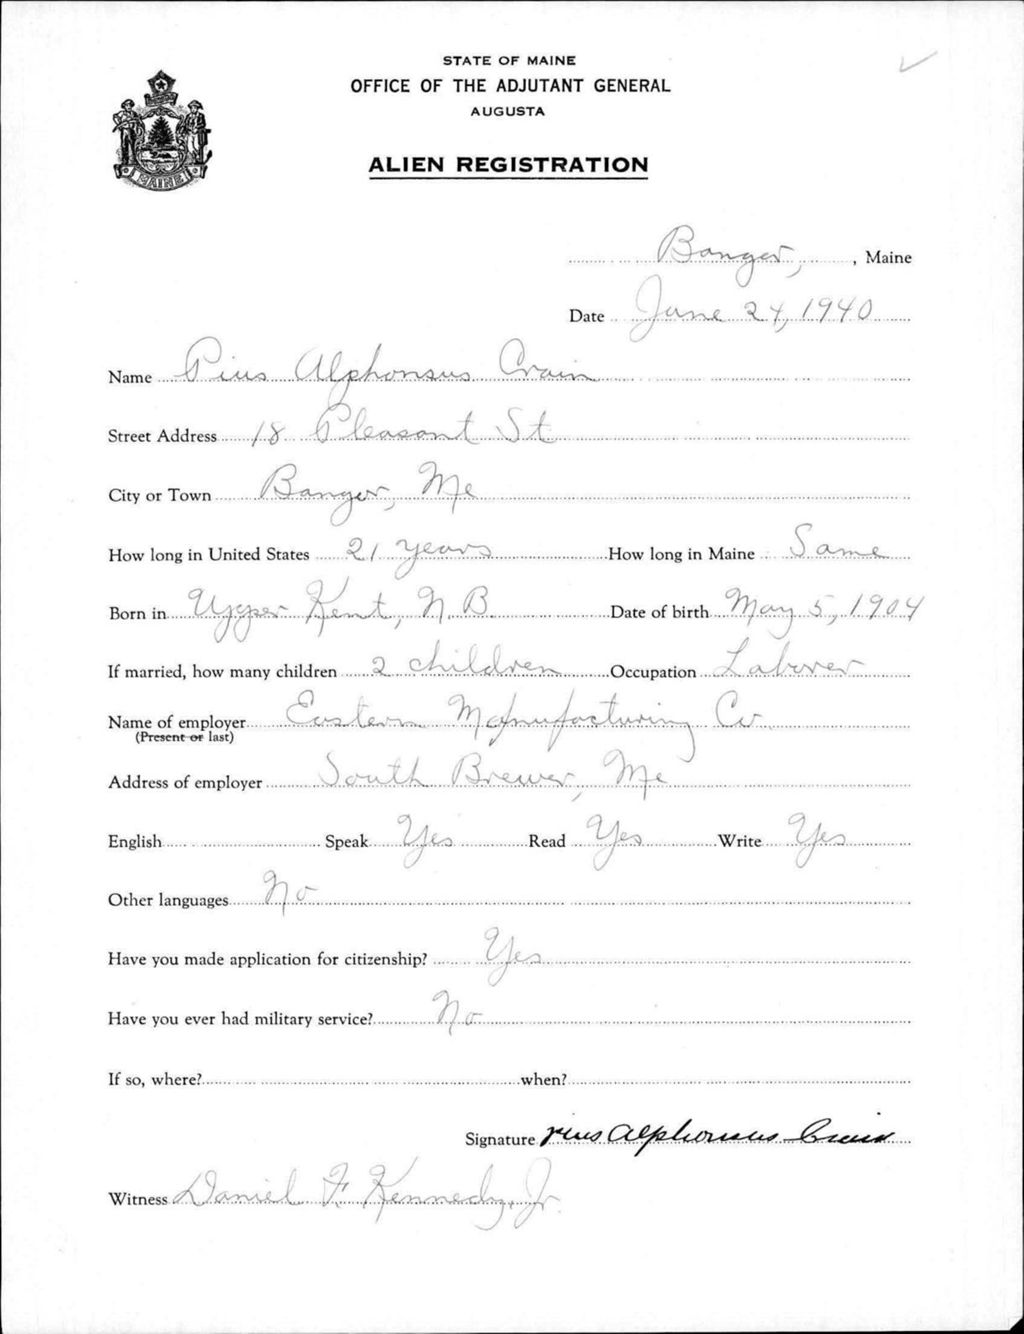 STATE OF MAINE
OFFICE OF THE ADJUTANT GENERAL
AUGUSTA
ALIEN REGISTRATION
MAINE
Bangor, , Maine
Date June 24, 1940
Name Pius Alphonsus Crain
Street Address 18 Pleasant St
City or Town Bangor, Me
How long in United States 21 years How long in Maine Same
Born in Upper Kent, N.B. Date of birth May 5, 1904
If married, how many children 2 children Occupation Laborer
Name of employer Eastern Manufacturing Co.
(Present or last)
Address of employer South Brewer, Me
English Speak Yes Read Yes Write Yes
Other languages No
Have you made application for citizenship? Yes
Have you ever had military service? No
If so, where? when?
Signature Pius Alphonsus Crain
Witness Daniel F. Kennedy, Jr.